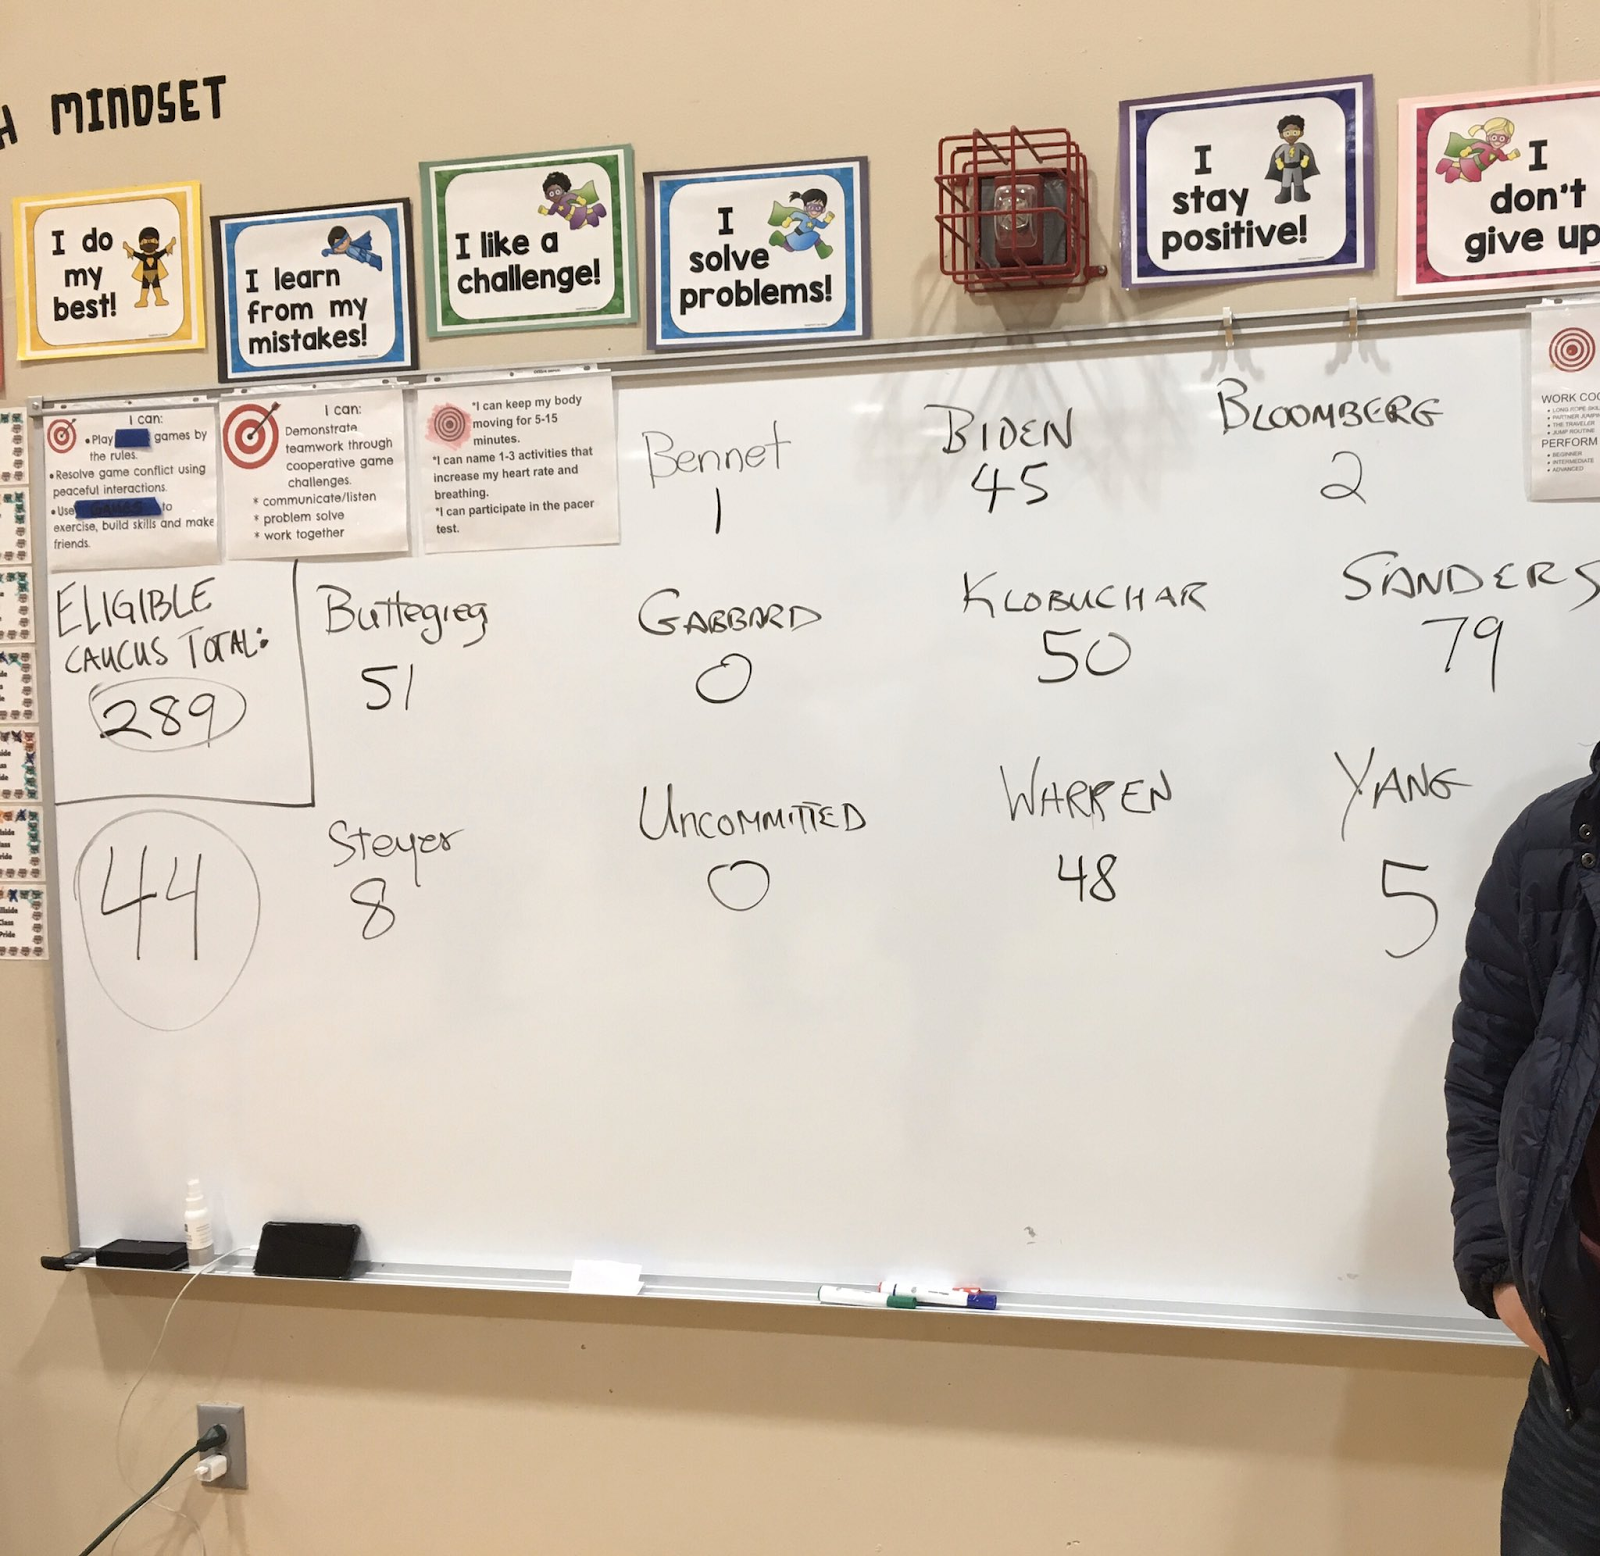 H MINDSET
I do
my
best!
I learn
from my
mistakes!
I like a
challenge!
I
solve
problems!
I
stay
positive!
I
don't
give up
I can:
• Play games by
the rules.
• Resolve game conflict using
peaceful interactions.
• Use GAMES to
exercise, build skills and make
friends.
I can:
Demonstrate
teamwork through
cooperative game
challenges.
* communicate/listen
* problem solve
* work together
*I can keep my body
moving for 5-15
minutes.
*I can name 1-3 activities that
increase my heart rate and
breathing.
*I can participate in the pacer
test.
WORK COO
• LONG ROPE SKIL
• PARTNER JUMPIN
• THE TRAVELER
• JUMP ROUTINE
PERFORM
• BEGINNER
• INTERMEDIATE
• ADVANCED
Bennet
1
BIDEN
45
BLOOMBERG
2
ELIGIBLE
CAUCUS TOTAL:
289
Buttegieg
51
GABBARD
0
KLOBUCHAR
50
SANDERS
79
44
Steyer
8
UNCOMMITTED
0
WARREN
48
YANG
5